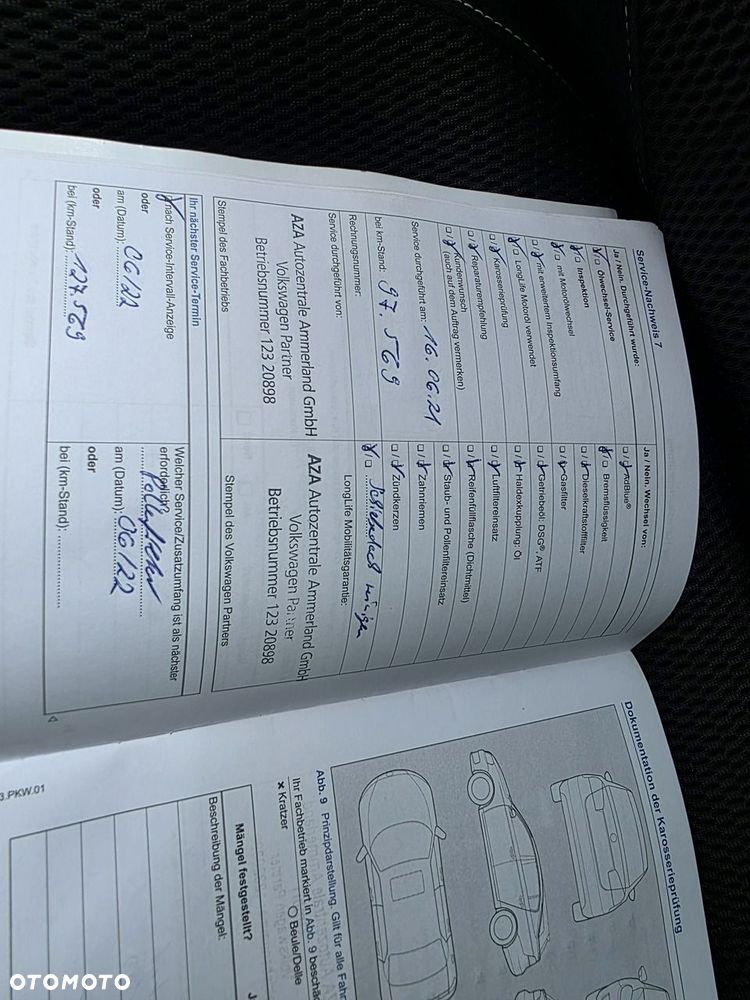 Service-Nachweis 7
Ja / Nein. Durchgeführt wurde:
Ölwechsel-Service
Inspektion
mit Motorölwechsel
mit erweitertem Inspektionsumfang
LongLife Motoröl verwendet
Karosserieprüfung
Reparaturempfehlung
Kundenwunsch
(auch auf dem Auftrag vermerken)
Service durchgeführt am: 16.06.21
bei km-Stand: 97.569
Rechnungsnummer:
Service durchgeführt von:
AZA Autozentrale Ammerland GmbH
Volkswagen Partner
Betriebsnummer 123 20898
Stempel des Fachbetriebs
Ja / Nein. Wechsel von:
AdBlue®
Bremsflüssigkeit
Dieselkraftstofffilter
Gasfilter
Getriebeöl: DSG®, ATF
Haldexkupplung: Öl
Luftfiltereinsatz
Reifenfüllflasche (Dichtmittel)
Staub- und Pollenfiltereinsatz
Zahnriemen
Zündkerzen
Schiebedach
LongLife Mobilitätsgarantie:
AZA Autozentrale Ammerland GmbH
Volkswagen Partner
Betriebsnummer 123 20898
Stempel des Volkswagen Partners
Ihr nächster Service-Termin
nach Service-Intervall-Anzeige
oder
am (Datum): 06/22
oder
bei (km-Stand): 127.569
Welcher Service/Zusatzumfang ist als nächster
erforderlich?
am (Datum): 06/22
oder
bei (km-Stand):
3.PKW.01
Dokumentation der Karosserieprüfung
Abb. 9 Prinzipdarstellung. Gilt für alle
Ihr Fachbetrieb markiert in Abb. 9
× Kratzer
○ Beule/Delle
Mängel festgestellt?
Beschreibung der Mängel:
OTOMOTO